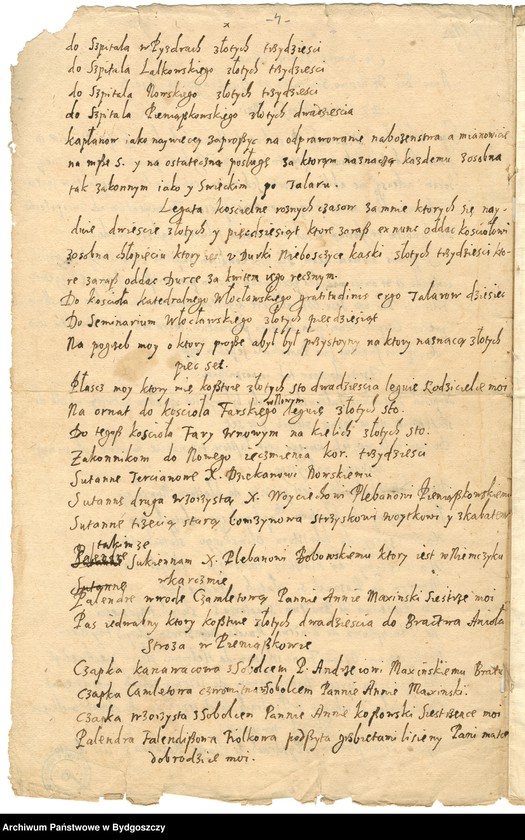 - 4 -
x
do Szpitala w Pyzdrach złotych trzydziesci
do Szpitala Lalkowskiego złotych trzydziesci
do Szpitala Nowskiego złotych trzydziesci
do Szpitala Pieniąszkowskiego złotych dwadziescia
kapłanow iako naywięcey zaprosyc na odprawowanie nabozenstwa a mianowicie
na mſze S. y na ostateczną posługę za ktorym naznaczą kazdemu zosobna
tak zakonnym iako y Swieckim po Talaru.
Legata koscielne roznych czasow zamnie ktorych się nay-
duie dwiescie złotych y pięcdziesiąt ktore zaraß ex nunc oddac kosciołowi
zosobna chłopięciu ktory iest v Durki Nieboszczyce kaski złotych trzydziesci kto-
re zaraß oddac Durce za kwitem iego ręcznym.
Do koscioła katedralnego Włocławskiego gratitudinis ergo Talarow dziesięc
Do Seminarium Włocławskiego złotych pięcdziesiąt
Na pogrzeb moy o ktory proszę abył był przystoyny na ktory naznaczą złotych
pięc set.
Płaszcz moy ktory mię koßtuie złotych sto dwadziescia leguię Rodzicielce moi
Na ornat do koscioła Farskiego wNowym leguię złotych sto.
Do tegoß koscioła Fary wnowym na kielich złotych sto.
Zakonnikom do Nowego ięczmienia kor. trzydziesci
Sutannę Tercianowę X. Dziekanowi Nowskiemu
Sutannę drugą wzorzystą X. Woyciechowi Plebanowi Pieniąszkowskiemu
Sutannę trzecią starą bomzynową Stryskowi Woytkowi y zkabatem
takimze
Sukiennam X. Plebanowi Bobowskiemu ktory iest wNiemczyku
wkarczmie
Palendrę wrodę Czamletową Pannie Annie Maxinski Siestrze moi
Pas iedwabny ktory koßtuie złotych dwadziescia do Bractwa Anioła
Stroza w Pieniąszkowie
Czapka kanawacowa zSobolcem P. Andrzeiowi Maxinskiemu Bratu
Czapka Camletowa czerwona zSobolcem Pannie Annie Maxinski.
Czapka wzorzysta zSobolcem Pannie Annie kozłowski Siestrzęce moi
Palendra Falendißowa Fiolkowa podßyta grzbietami lisiemy Pani matce
dobrodziice moi.
Archiwum Państwowe w Bydgoszczy